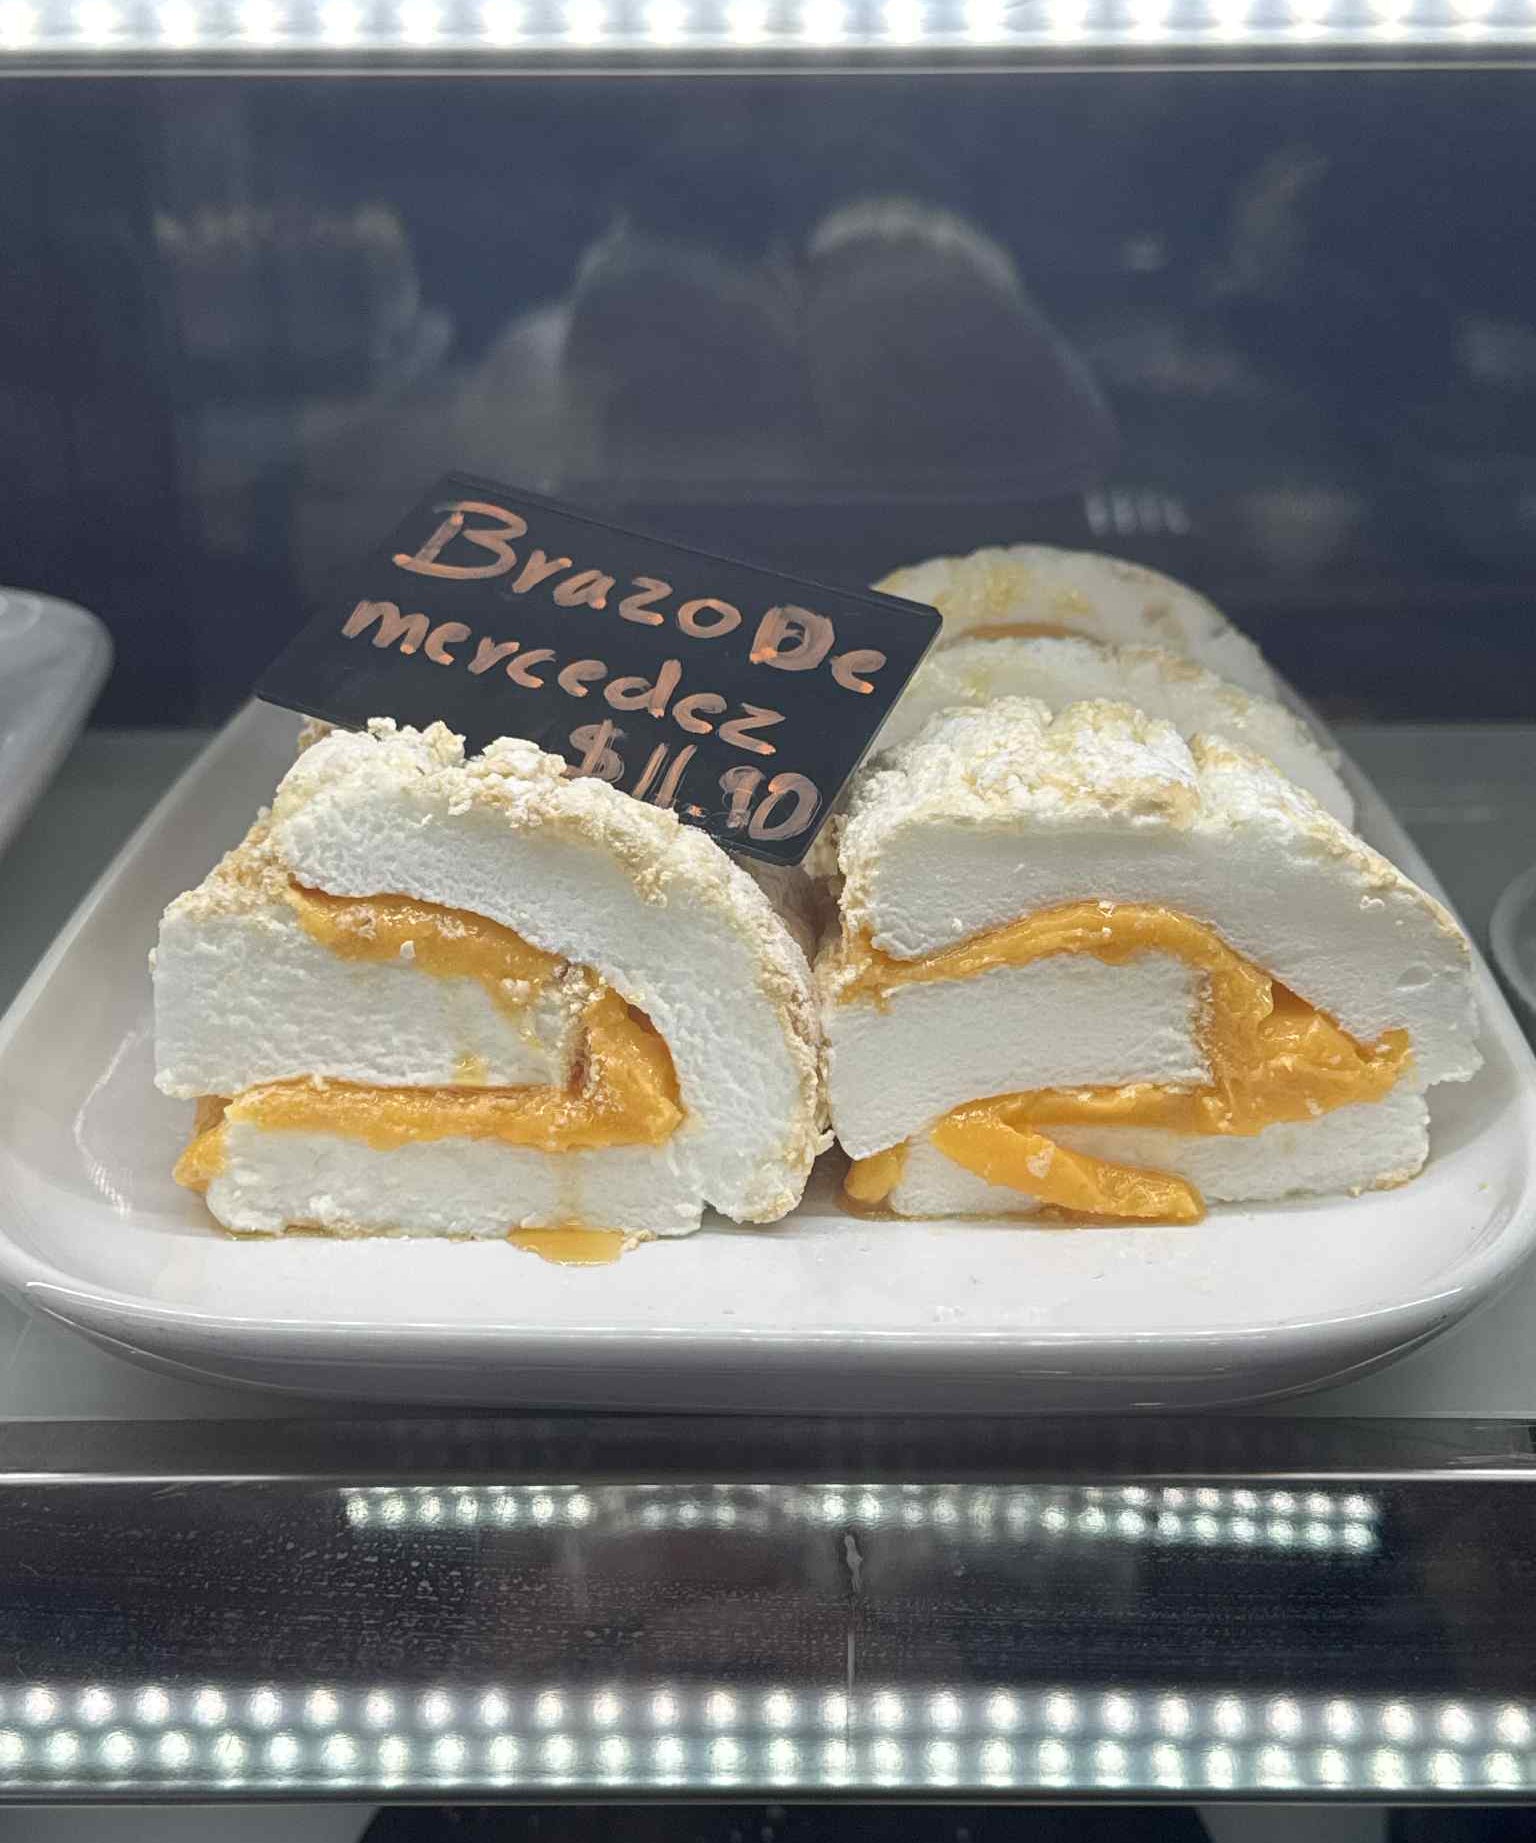 Brazo De
mercedez
$11.90